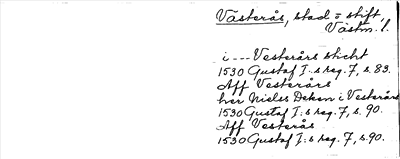 Västerås, stad o stift
Västm. l.
i --- Vesterårs sticht
1530 Gustaf I:s reg. 7, s. 83.
Aff Vesterårs
her Nielss Deken i Vesterårs
1530 Gustaf I:s reg. 7, s. 90.
Aff Vesterås
1530 Gustaf I:s reg. 7, s. 90.